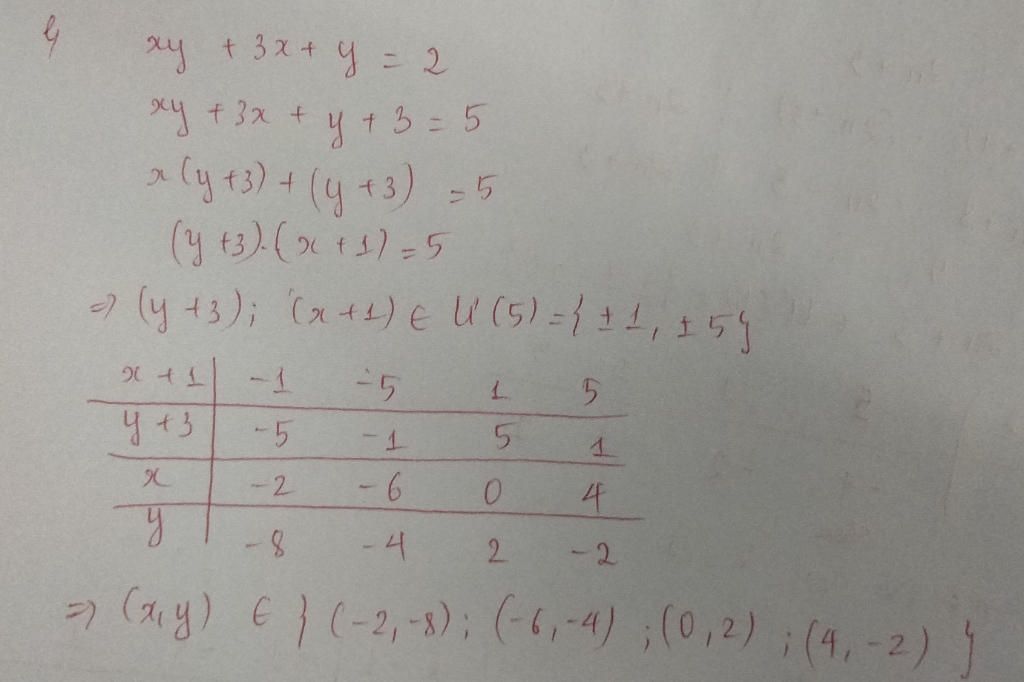 xy + 3x + y = 2
xy + 3x + y + 3 = 5
x(y+3) + (y+3) = 5
(y+3).(x+1) = 5
=> (y+3); (x+1) ∈ Ư(5) = { ±1, ±5 }
x+1 | -1 -5 1 5
y+3 | -5 -1 5 1
x | -2 -6 0 4
y | -8 -4 2 -2
=> (x,y) ∈ { (-2,-8); (-6,-4) ; (0,2) ; (4,-2) }